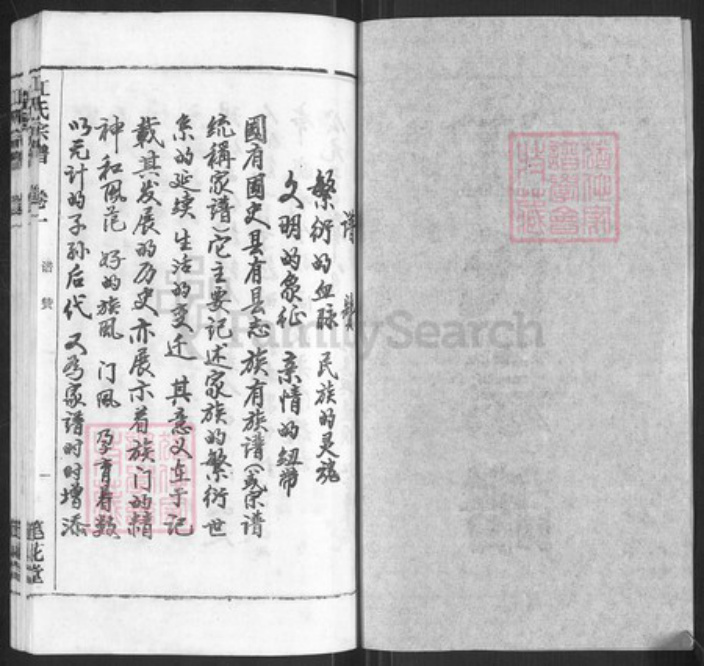 譜贊
繁衍的血脉 民族的灵魂
文明的象征 亲情的纽带
國有國史县有县志族有族譜(或宗譜
统稱家谱)它主要记述家族的繁衍世
系的延续 生活的变迁 其意义在于记
載其发展的历史亦展示着族门的精
神和風范 好的族風 门風 孕育着数
以无计的子孙后代 又為家譜时时增添
江氏宗譜 卷一 谱赞 一 笔花堂
FamilySearch